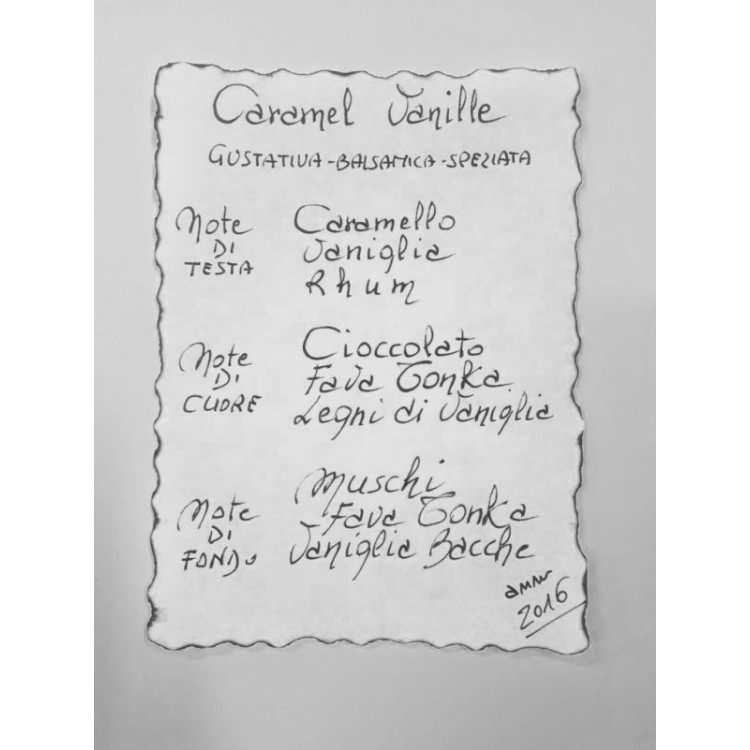 Caramel Vanille
GUSTATIVA-BALSAMICA-SPEZIATA
Note
DI
TESTA
Caramello
Vaniglia
Rhum
Note
DI
CUORE
Cioccolato
Fava Tonka
Legni di Vaniglia
Note
DI
FONDO
Muschi
Fava Tonka
Vaniglia Bacche
2016